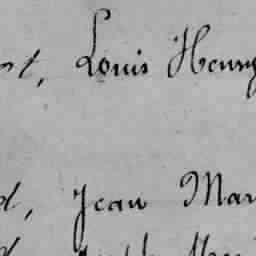 nt, Louis Henry
d, Jean Mar